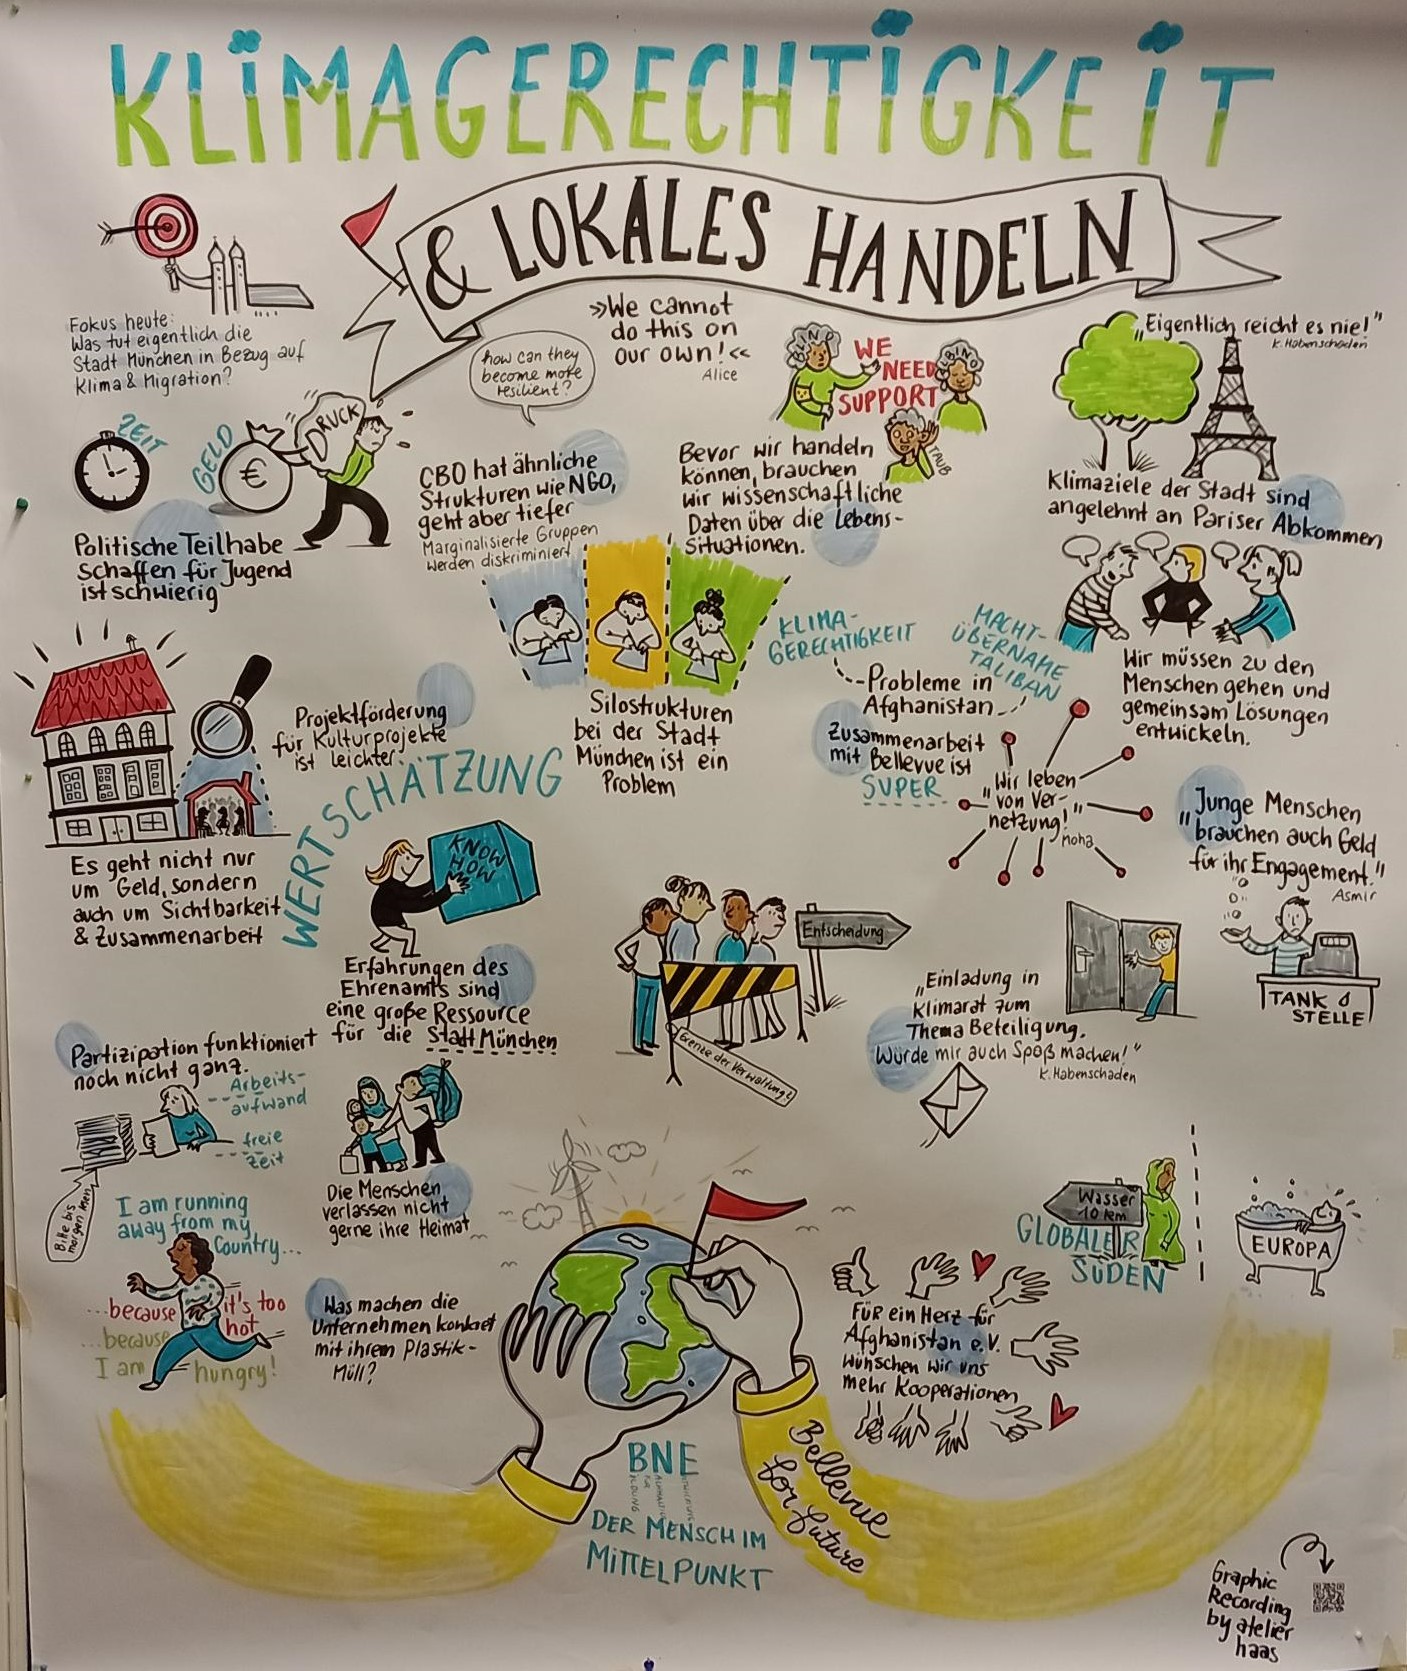 KLIMAGERECHTIGKEIT
& LOKALES HANDELN
Fokus heute:
Was tut eigentlich die
Stadt München in Bezug auf
Klima & Migration?
ZEIT
GELD
€
DRUCK
Politische Teilhabe
schaffen für Jugend
ist schwierig
how can they
become more
resilient?
»We cannot
do this on
our own!«
Alice
BLIND
WE
NEED
SUPPORT
TAUB
CBO hat ähnliche
Strukturen wie NGO,
geht aber tiefer
Marginalisierte Gruppen
werden diskriminiert
Bevor wir handeln
können, brauchen
wir wissenschaftliche
Daten über die Lebens-
Situationen.
„Eigentlich reicht es nie!"
K. Habenschaden
Klimaziele der Stadt sind
angelehnt an Pariser Abkommen
Wir müssen zu den
Menschen gehen und
gemeinsam Lösungen
entwickeln.
Silostrukturen
bei der Stadt
München ist ein
Problem
KLIMA-
GERECHTIGKEIT
MACHT-
ÜBERNAHME
TALIBAN
Probleme in
Afghanistan
Zusammenarbeit
mit Bellevue ist
SUPER
„Wir leben
von Ver-
netzung!"
Moha
„Junge Menschen
brauchen auch Geld
für ihr Engagement."
Asmir
TANK
STELLE
Projektförderung
für Kulturprojekte
ist leichter.
WERTSCHÄTZUNG
Es geht nicht nur
um Geld, sondern
auch um Sichtbarkeit
& Zusammenarbeit
KNOW
HOW
Erfahrungen des
Ehrenamts sind
eine große Ressource
für die Stadt München
Entscheidung
Grenze der Verwaltung?
„Einladung in
Klimarat zum
Thema Beteiligung.
Würde mir auch Spaß machen!"
K. Habenschaden
Partizipation funktioniert
noch nicht ganz.
Arbeits-
aufwand
freie
Zeit
Bitte bis
morgen lesen
Die Menschen
verlassen nicht
gerne ihre Heimat
I am running
away from my
Country...
...because it's too
hot
...because
I am hungry!
Was machen die
Unternehmen konkret
mit ihrem Plastik-
Müll?
Wasser
10 km
GLOBALER
SÜDEN
EUROPA
Für ein Herz für
Afghanistan e.V.
wünschen wir uns
mehr Kooperationen
BNE
BILDUNG
FÜR
NACHHALTIGE
ENTWICKLUNG
DER MENSCH IM
MITTELPUNKT
Bellevue
for future
Graphic
Recording
by atelier
haas